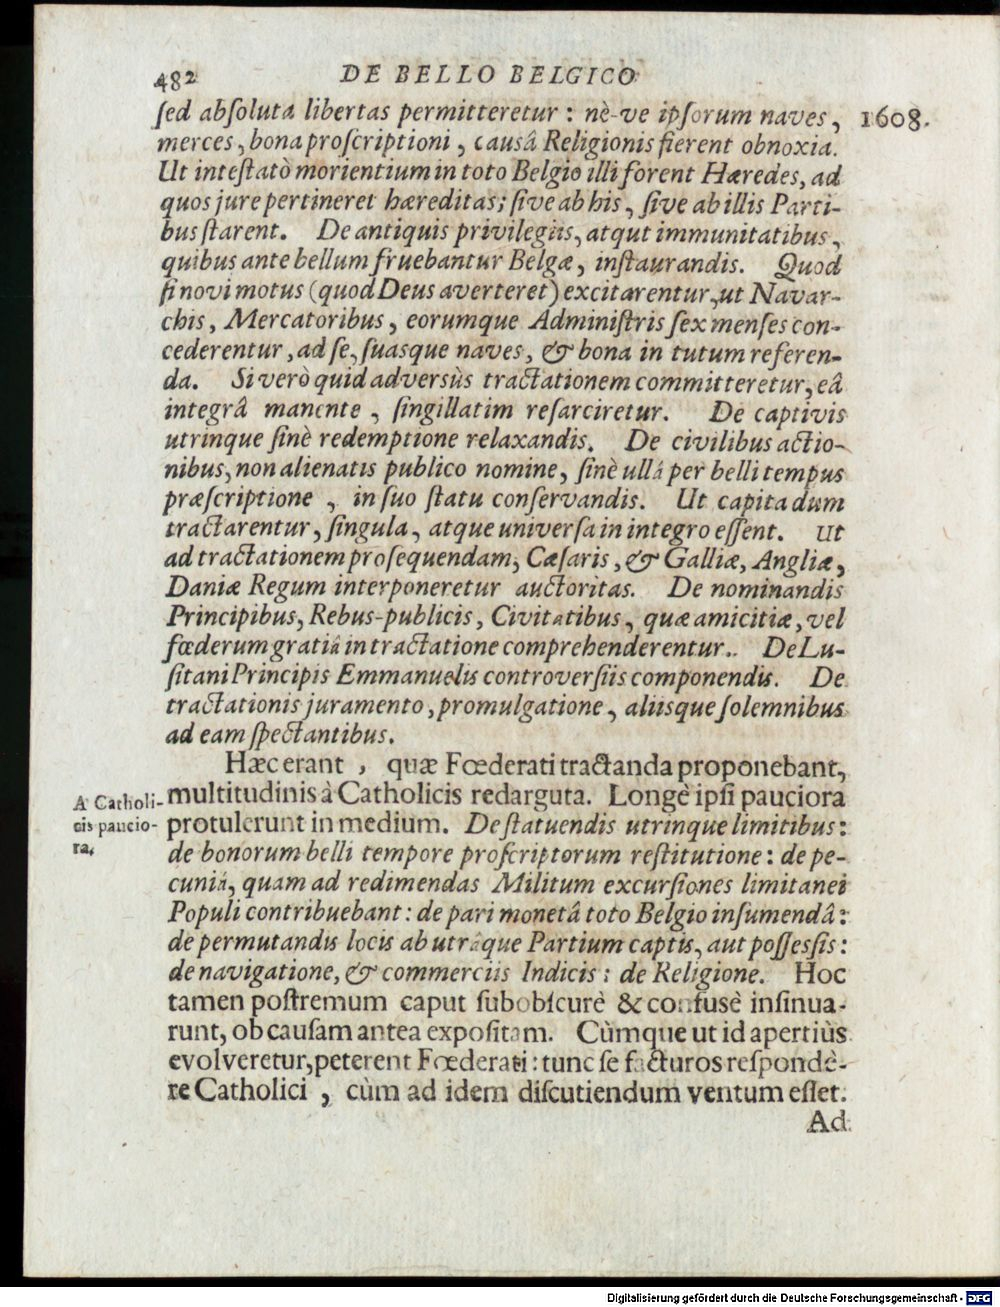 482 DE BELLO BELGICO
ſed abſoluta libertas permitteretur : nè-ve ipſorum naves, 1608.
merces, bona proſcriptioni, causâ Religionis fierent obnoxia.
Ut inteſtatò morientium in toto Belgio illi forent Hæredes, ad
quos jure pertineret hæreditas; ſive ab his, ſive ab illis Parti-
bus ſtarent. De antiquis privilegiis, atqut immunitatibus,
quibus ante bellum fruebantur Belgæ, inſtaurandis. Quod
ſi novi motus (quod Deus averteret) excitarentur, ut Navar-
chis, Mercatoribus, eorumque Adminiſtris ſex menſes con-
cederentur, ad ſe, ſuasque naves, & bona in tutum referen-
da. Si verò quid adversùs tractationem committeretur, eâ
integrâ manente, ſingillatim reſarciretur. De captivis
utrinque ſinè redemptione relaxandis. De civilibus actio-
nibus, non alienatis publico nomine, ſinè ullâ per belli tempus
præſcriptione, in ſuo ſtatu conſervandis. Ut capita dum
tractarentur, ſingula, atque univerſa in integro eſſent. Ut
ad tractationem proſequendam, Cæſaris, & Galliæ, Angliæ,
Daniæ Regum interponeretur auctoritas. De nominandis
Principibus, Rebus-publicis, Civitatibus, quæ amicitiæ, vel
fœderum gratiâ in tractatione comprehenderentur.. De Lu-
ſitani Principis Emmanuelis controverſiis componendis. De
tractationis juramento, promulgatione, aliisque ſolemnibus
ad eam ſpectantibus.
Hæc erant, quæ Fœderati tractanda proponebant,
A Catholi-
cis paucio-
ra.
multitudinis à Catholicis redarguta. Longè ipſi pauciora
protulerunt in medium. De ſtatuendis utrinque limitibus:
de bonorum belli tempore proſcriptorum reſtitutione: de pe-
cuniâ, quam ad redimendas Militum excurſiones limitanei
Populi contribuebant: de pari monetâ toto Belgio inſumendâ:
de permutandis locis ab utrâque Partium captis, aut poſſeſſis:
de navigatione, & commerciis Indicis: de Religione. Hoc
tamen poſtremum caput ſubobſcurè & confusè inſinua-
runt, ob cauſam antea expoſitam. Cùmque ut id apertiùs
evolveretur, peterent Fœderati: tunc ſe facturos reſpondê-
re Catholici, cùm ad idem diſcutiendum ventum eſſet.
Ad
Digitalisierung gefördert durch die Deutsche Forschungsgemeinschaft - DFG